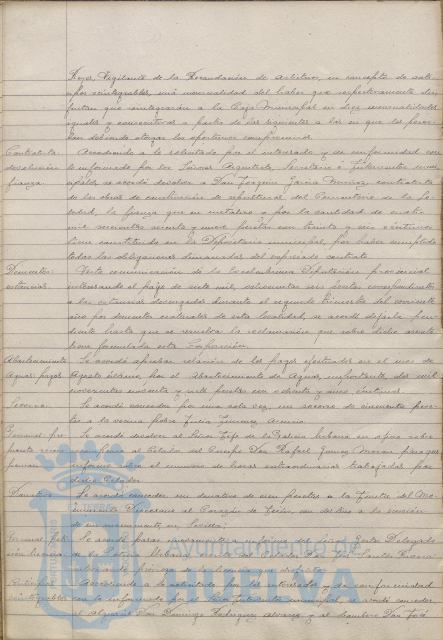 Reyes, Vigilante de la Recaudación de Arbitrios, en concepto de anti-
cipos reintegrables, una mensualidad del haber que respectivamente dis-
frutan que reintegrarán a la Caja Municipal en diez mensualidades
iguales y consecutivas a partir de las siguientes a los en que las perci-
ban debiendo otorgar los oportunos compromisos.
Contratista Accediendo a lo solicitado por el interesado y de conformidad con
devolución lo informado por los Señores Arquitecto, Secretario é Interventor muni-
fianza. cipales, se acordó devolver a Don Joaquin García Muñoz, contratista
de las obras de construcción de sepulturas del Cementerio de la So-
ledad, la fianza que en metálico y por la cantidad de cuatro
mil seiscientas noventa y nueve pesetas con treinta y seis céntimos
tiene constituida en la Depositaría municipal, por haber cumplido
todas las obligaciones dimanadas del expresado contrato.
Dementes Vista comunicación de la Excelentísima Diputación provincial
estancias. interesando el pago de siete mil, ochocientas seis pesetas correspondientes
a las estancias devengadas durante el segundo trimestre del corriente
año por dementes naturales de esta localidad, se acordó dejarla pen-
diente hasta que se resuelva la reclamación que sobre dicho asunto
tiene formulada esta Corporación.
Abastecimiento Se acordó aprobar relación de los pagos efectuados en el mes de
Aguas: pagos Agosto último, por el Abastecimiento de Aguas, importante, dos mil
novecientas cincuenta y siete pesetas con ochenta y cinco céntimos.
Socorro. Se acordó conceder por una sola vez, un socorro de cincuenta pese-
tas a la vecina pobre
Se acordó devolver al Señor Jefe de la Guardia Urbana
del Cuerpo Don Rafael Gomez Moreno para que
informe sobre el número de horas extraordinarias trabajadas por
dicho Celador.
Donativo. Se acordó conceder un donativo de cien pesetas a la Junta del Mo-
numento Diocesano al Corazón de Jesús, con destino a la erección
de su monumento, en Sevilla.
Se acordó pasar nuevamente a informe del Señor Gestor Delegado
de la Policía Urbana
Accediendo a lo solicitado por los interesados y de conformidad
reintegrables con lo informado por el Señor Interventor municipal se acordó conceder
al Don Domingo Rodriguez Alvarez y al bombero Don José
Ayuntamiento de
HUELVA